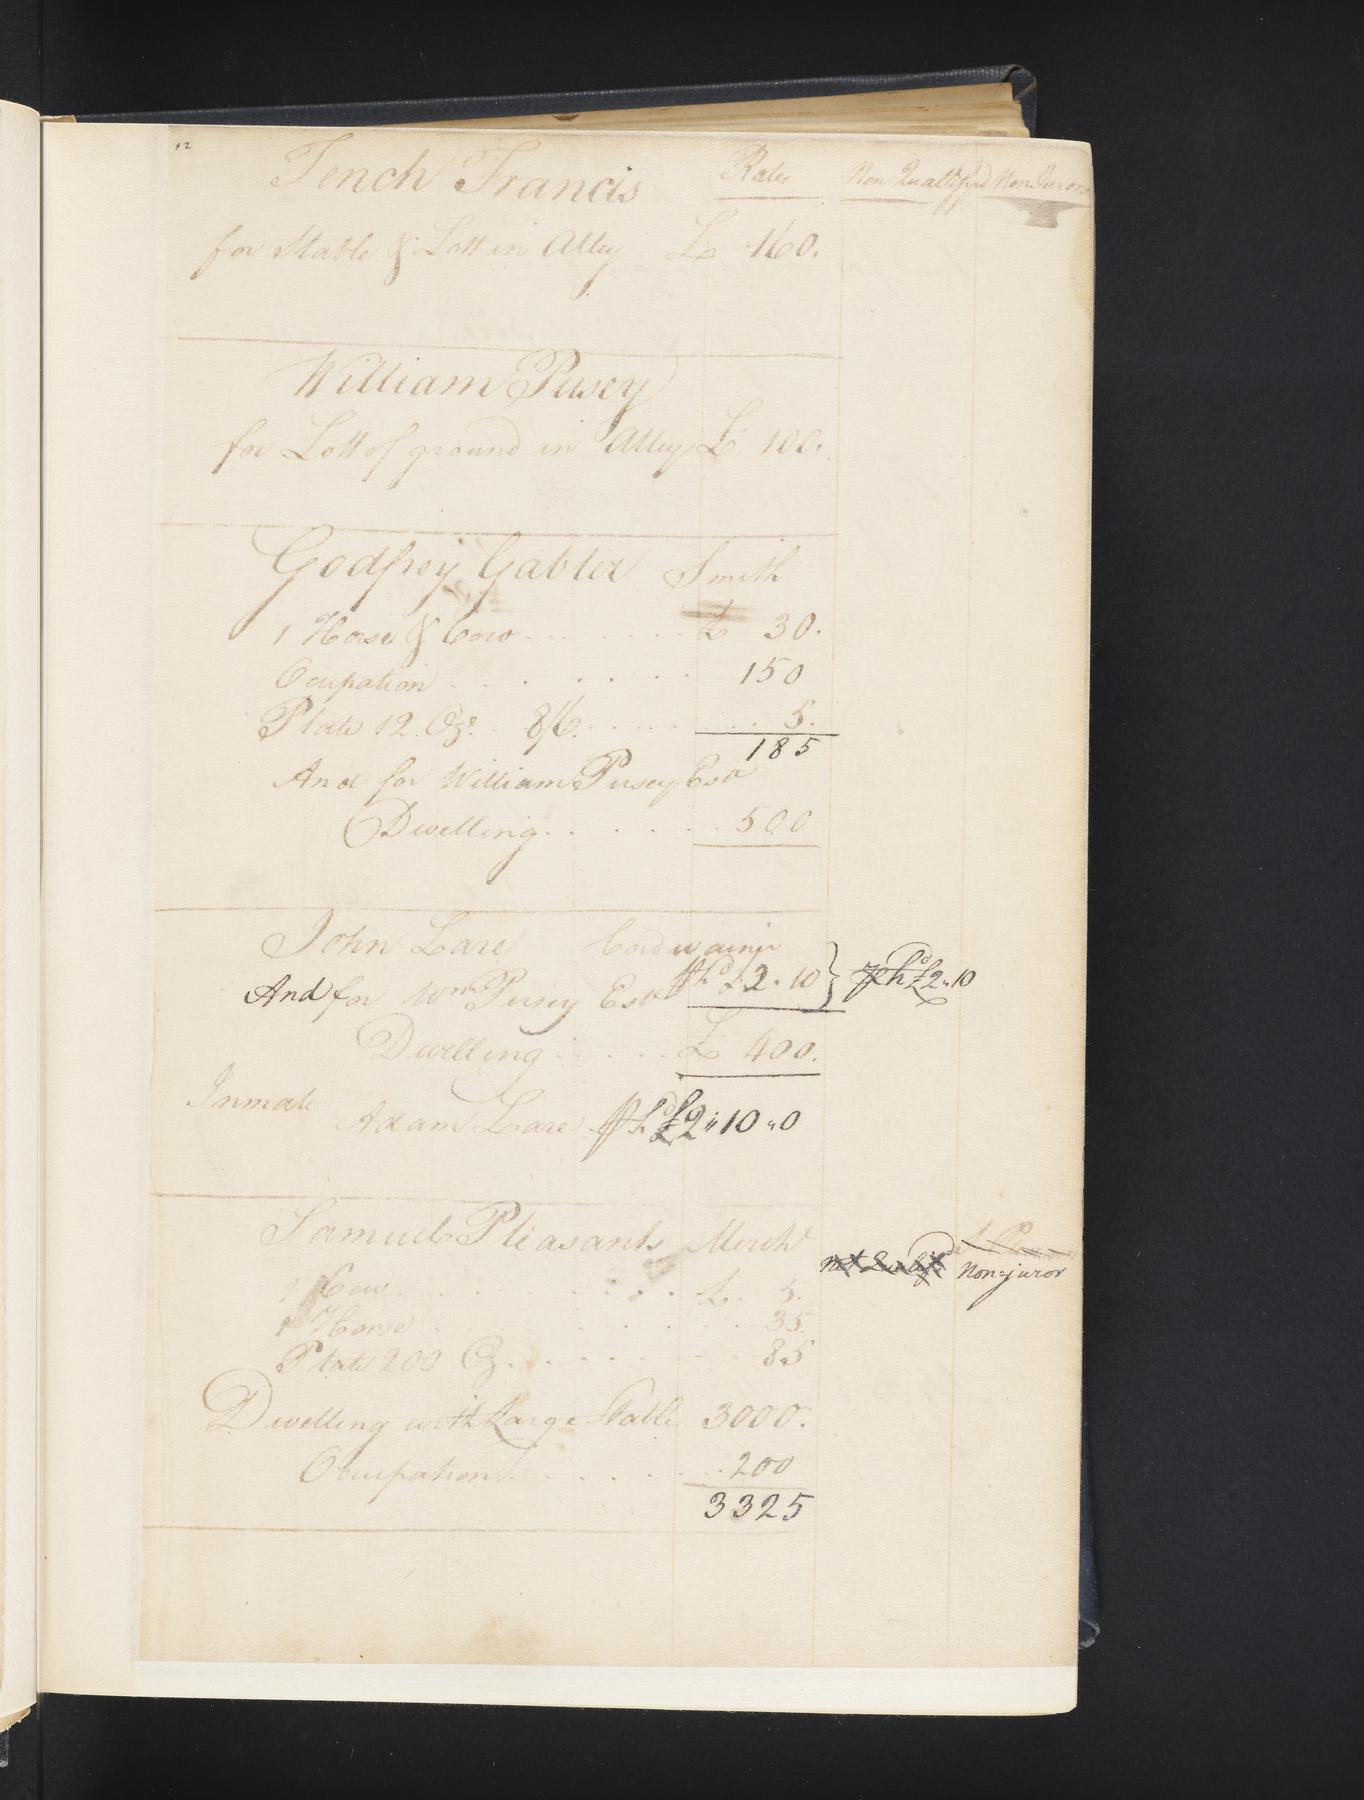 12
Tench Francis Rates Non Qualifyd Non Jurors
for Stable & Lott in Alley £ 160.
William Pusey
for Lott of ground in Alley £ 100.
Godfrey Gabler Smith
1 Horse & Cow £ 30.
Ocupation 150
Plate 12 Ozs. 8/6. 5.
185
And for William Pusey Esta
Dwelling 500
John Lare Cordwainer
And for Wm Pusey Esta ⅌ hd £2.10 } ⅌ hd £2.10
Dwelling £ 400.
Inmate
Adam Lare ⅌ hd £2"10"0
Samuel Pleasants Mercht
Not Qualifyd Non=juror
1 Cow £ 5.
1 Horse 35.
Plate 200 Oz. 85
Dwelling with Large Stable 3000.
Occupation 200
3325